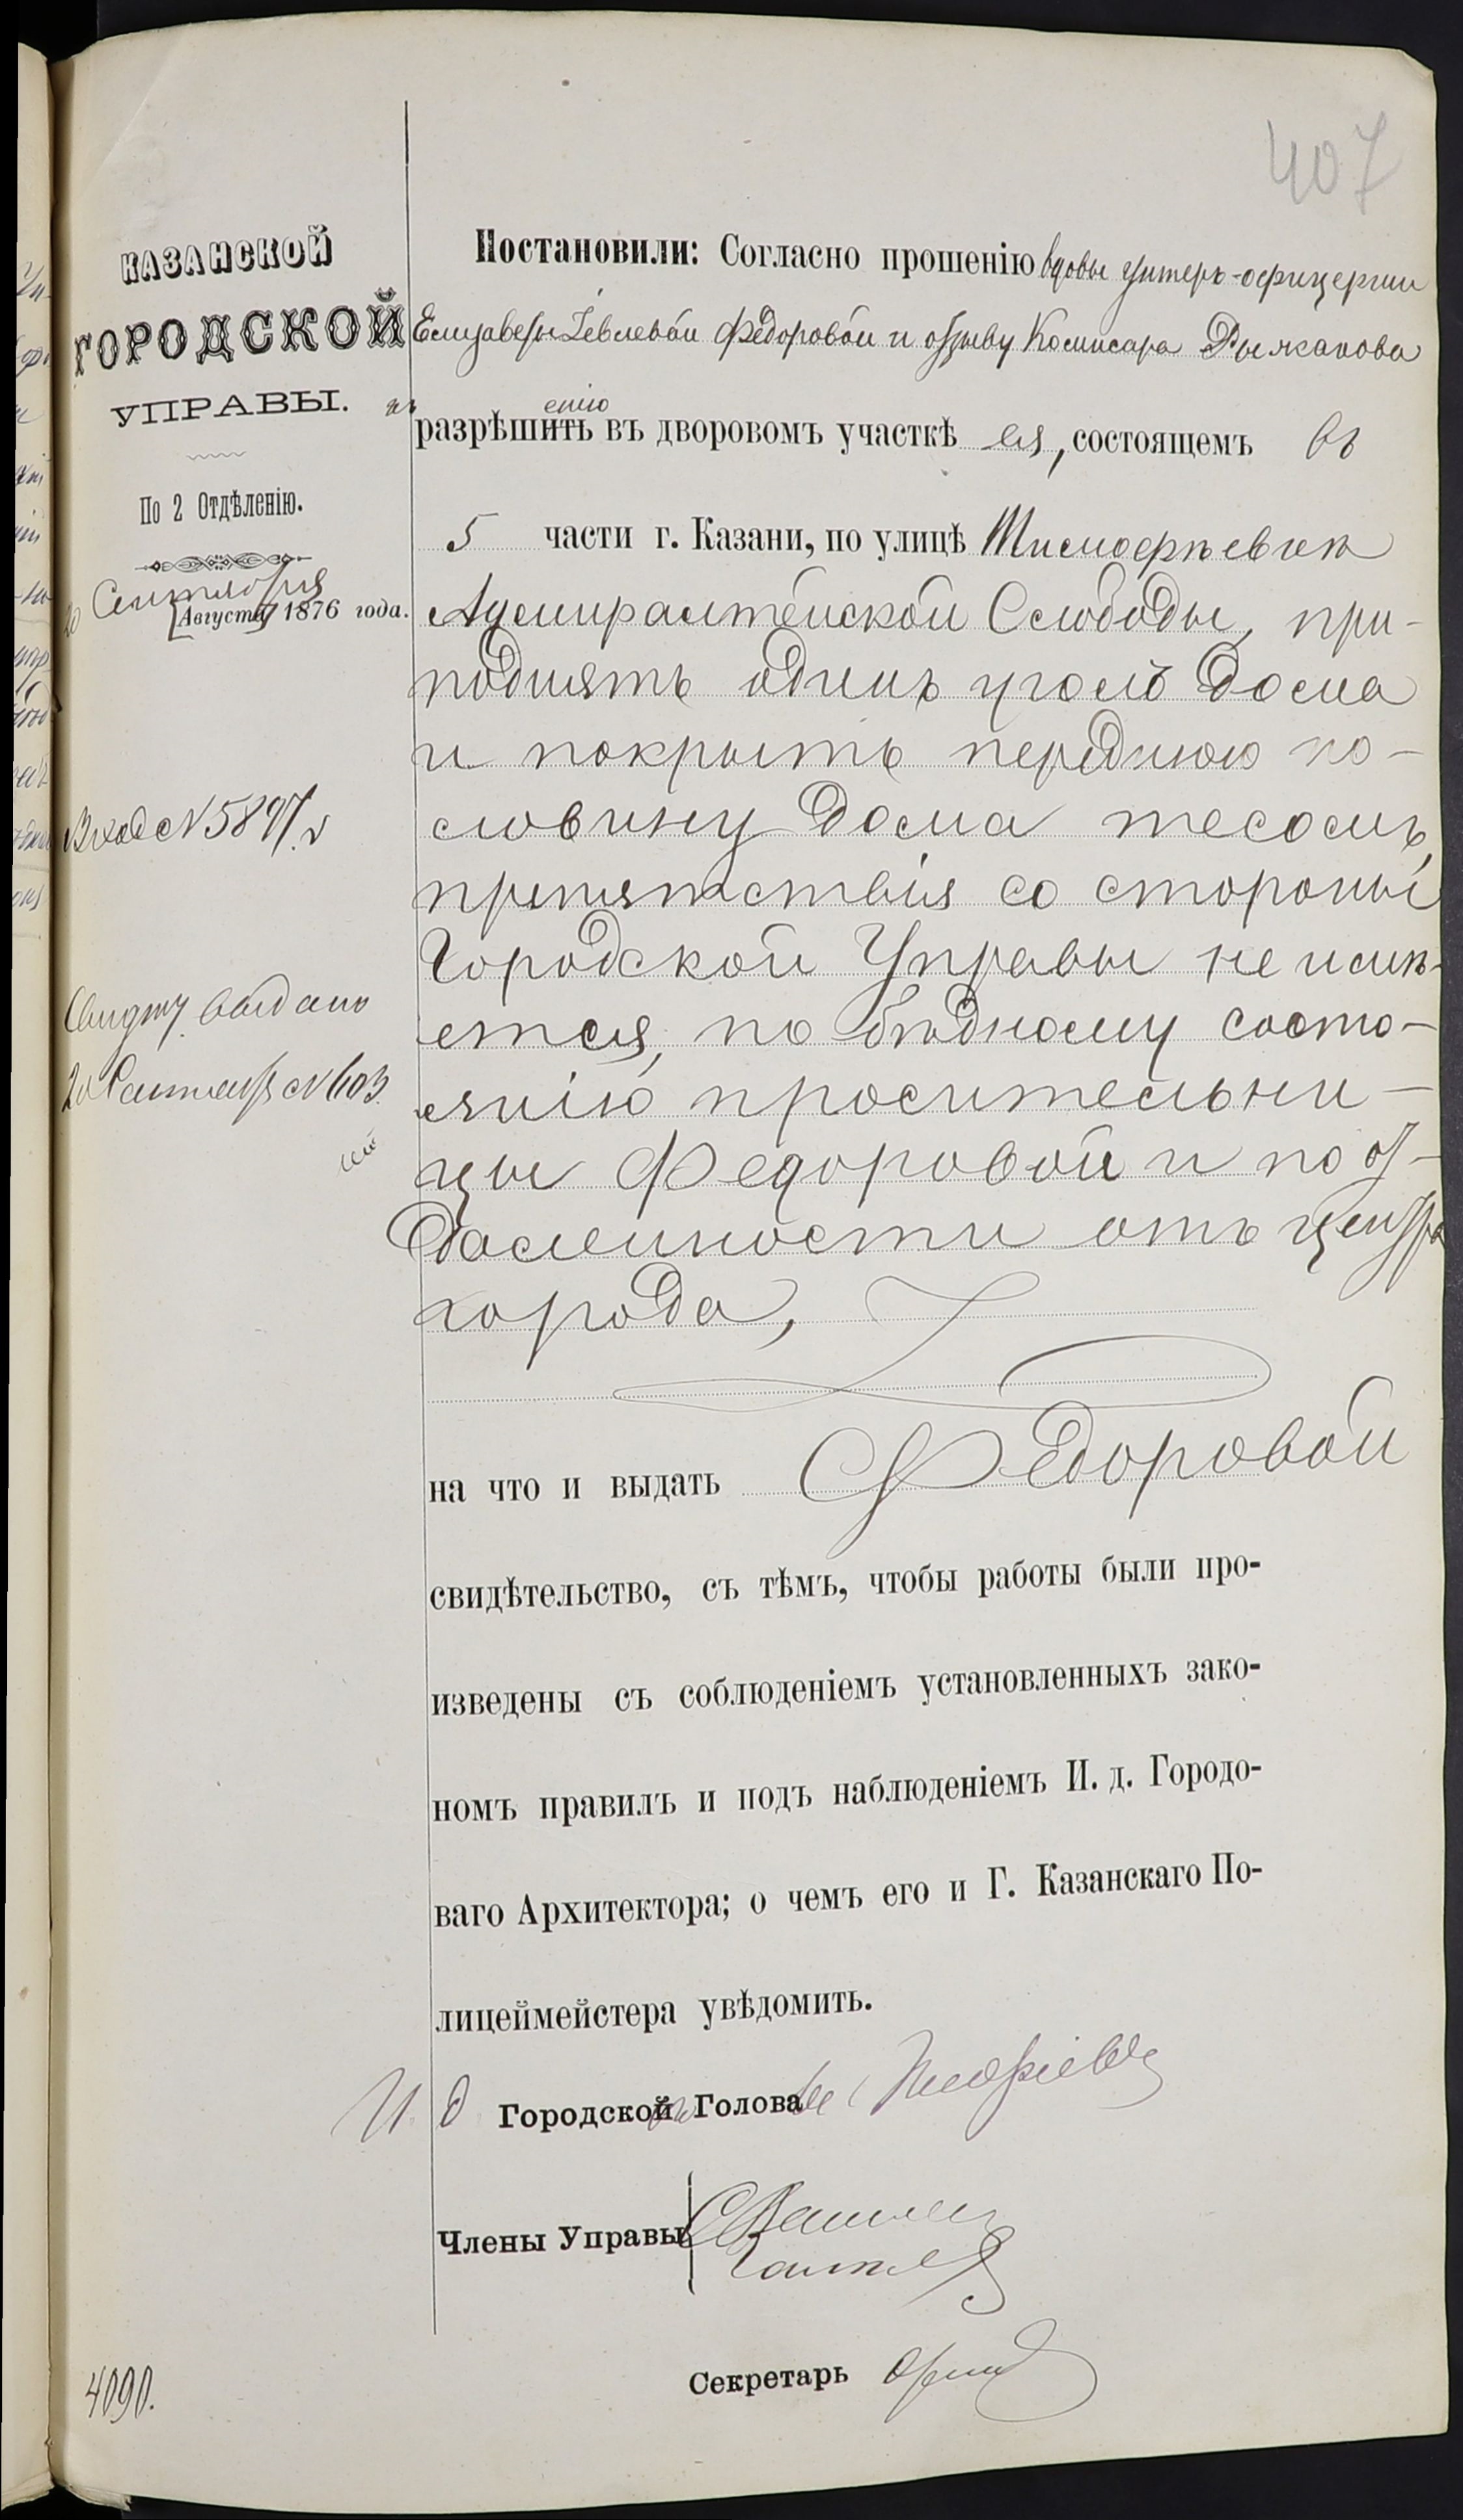 407
КАЗАНСКОЙ
ГОРОДСКОЙ
УПРАВЫ.
По 2 Отдѣленію.
20 Сентября
[Августа] 1876 года.
Вход №5897.
Свидѣт. выдано
20 Сентябр №603.
4090.
Постановили: Согласно прошенію вдовы унтеръ-офицерши
Елизаветы Іевлевой Федоровой и отзыву Комисара
къ разрѣшенію въ дворовомъ участкѣ ея, состоящемъ въ
5 части г. Казани, по улицѣ Тимофѣевск
Адмиралтейской Слободы, при-
поднять одинъ уголъ дома
и покрыть переднюю по-
ловину дома тесомъ,
препятствія со стороны
Городской Управы не имѣ-
ется, по бѣдному состо-
янію просительни-
цы Федоровой и по от-
даленности отъ центра
города,
на что и выдать Федоровой
свидѣтельство, съ тѣмъ, чтобы работы были про-
изведены съ соблюденіемъ установленныхъ зако-
номъ правилъ и подъ наблюденіемъ И. д. Городо-
ваго Архитектора; о чемъ его и Г. Казанскаго По-
лицеймейстера увѣдомить.
И. д Городской Голова
Члены Управы
Секретарь